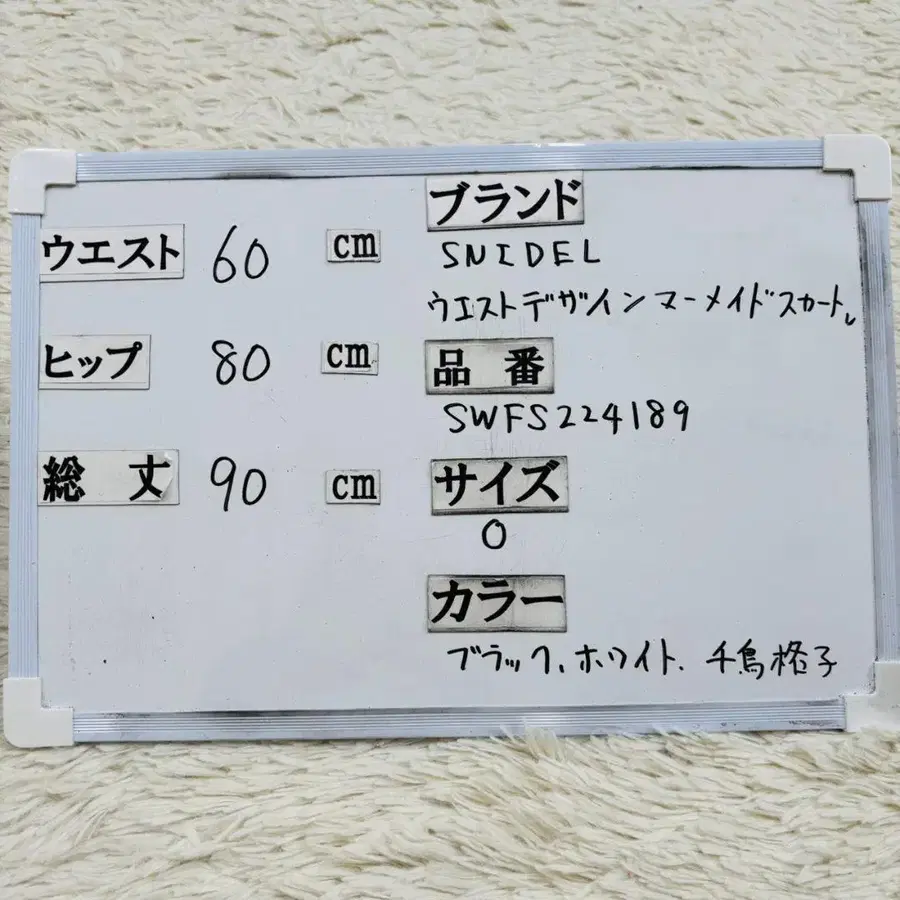 ウエスト 60 cm
ヒップ 80 cm
総丈 90 cm
ブランド
SNIDEL
ウエストデザインマーメイドスカート
品番
SWFS224189
サイズ
0
カラー
ブラック、ホワイト、千鳥格子